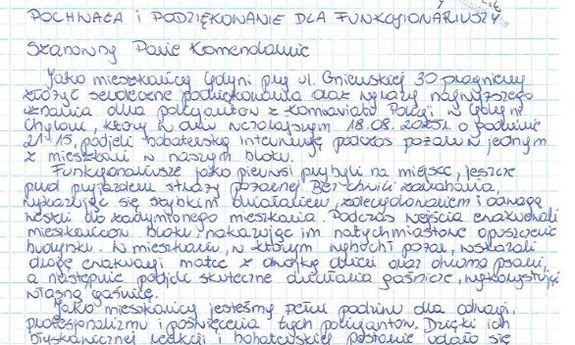 POCHWAŁA i PODZIĘKOWANIE DLA FUNKCJONARIUSZY
Szanowny Panie Komendancie
Jako mieszkańcy Gdyni przy ul. Gniewskiej 30 pragniemy
złożyć serdeczne podziękowania oraz wyrazy najwyższego
uznania dla policjantów z Komisariatu Policji w Gdyni
Chyloni, którzy w dniu wczorajszym 18.08.2025r o godzinie
21-15, podjęli bohaterską interwencję podczas pożaru w jednym
z mieszkań w naszym bloku.
Funkcjonariusze jako pierwsi przybyli na miejsce, jeszcze
przed przyjazdem straży pożarnej. Bez chwili zawahania,
wykazując się szybkim działaniem, zdecydowaniem i odwagą
weszli do zadymionego mieszkania. Podczas wejścia ewakuowali
mieszkańców bloku, nakazując im natychmiastowe opuszczenie
budynku. W mieszkaniu, w którym wybuchł pożar, wskazali
drogę ewakuacji matce z dwójką dzieci oraz dwoma psami,
a następnie podjęli skuteczne działania gaśnicze, wykorzystując
własną gaśnicę.
Jako mieszkańcy jesteśmy pełni podziwu dla odwagi,
profesjonalizmu i poświęcenia tych policjantów. Dzięki ich
błyskawicznej reakcji i bohaterskiej postawie udało się